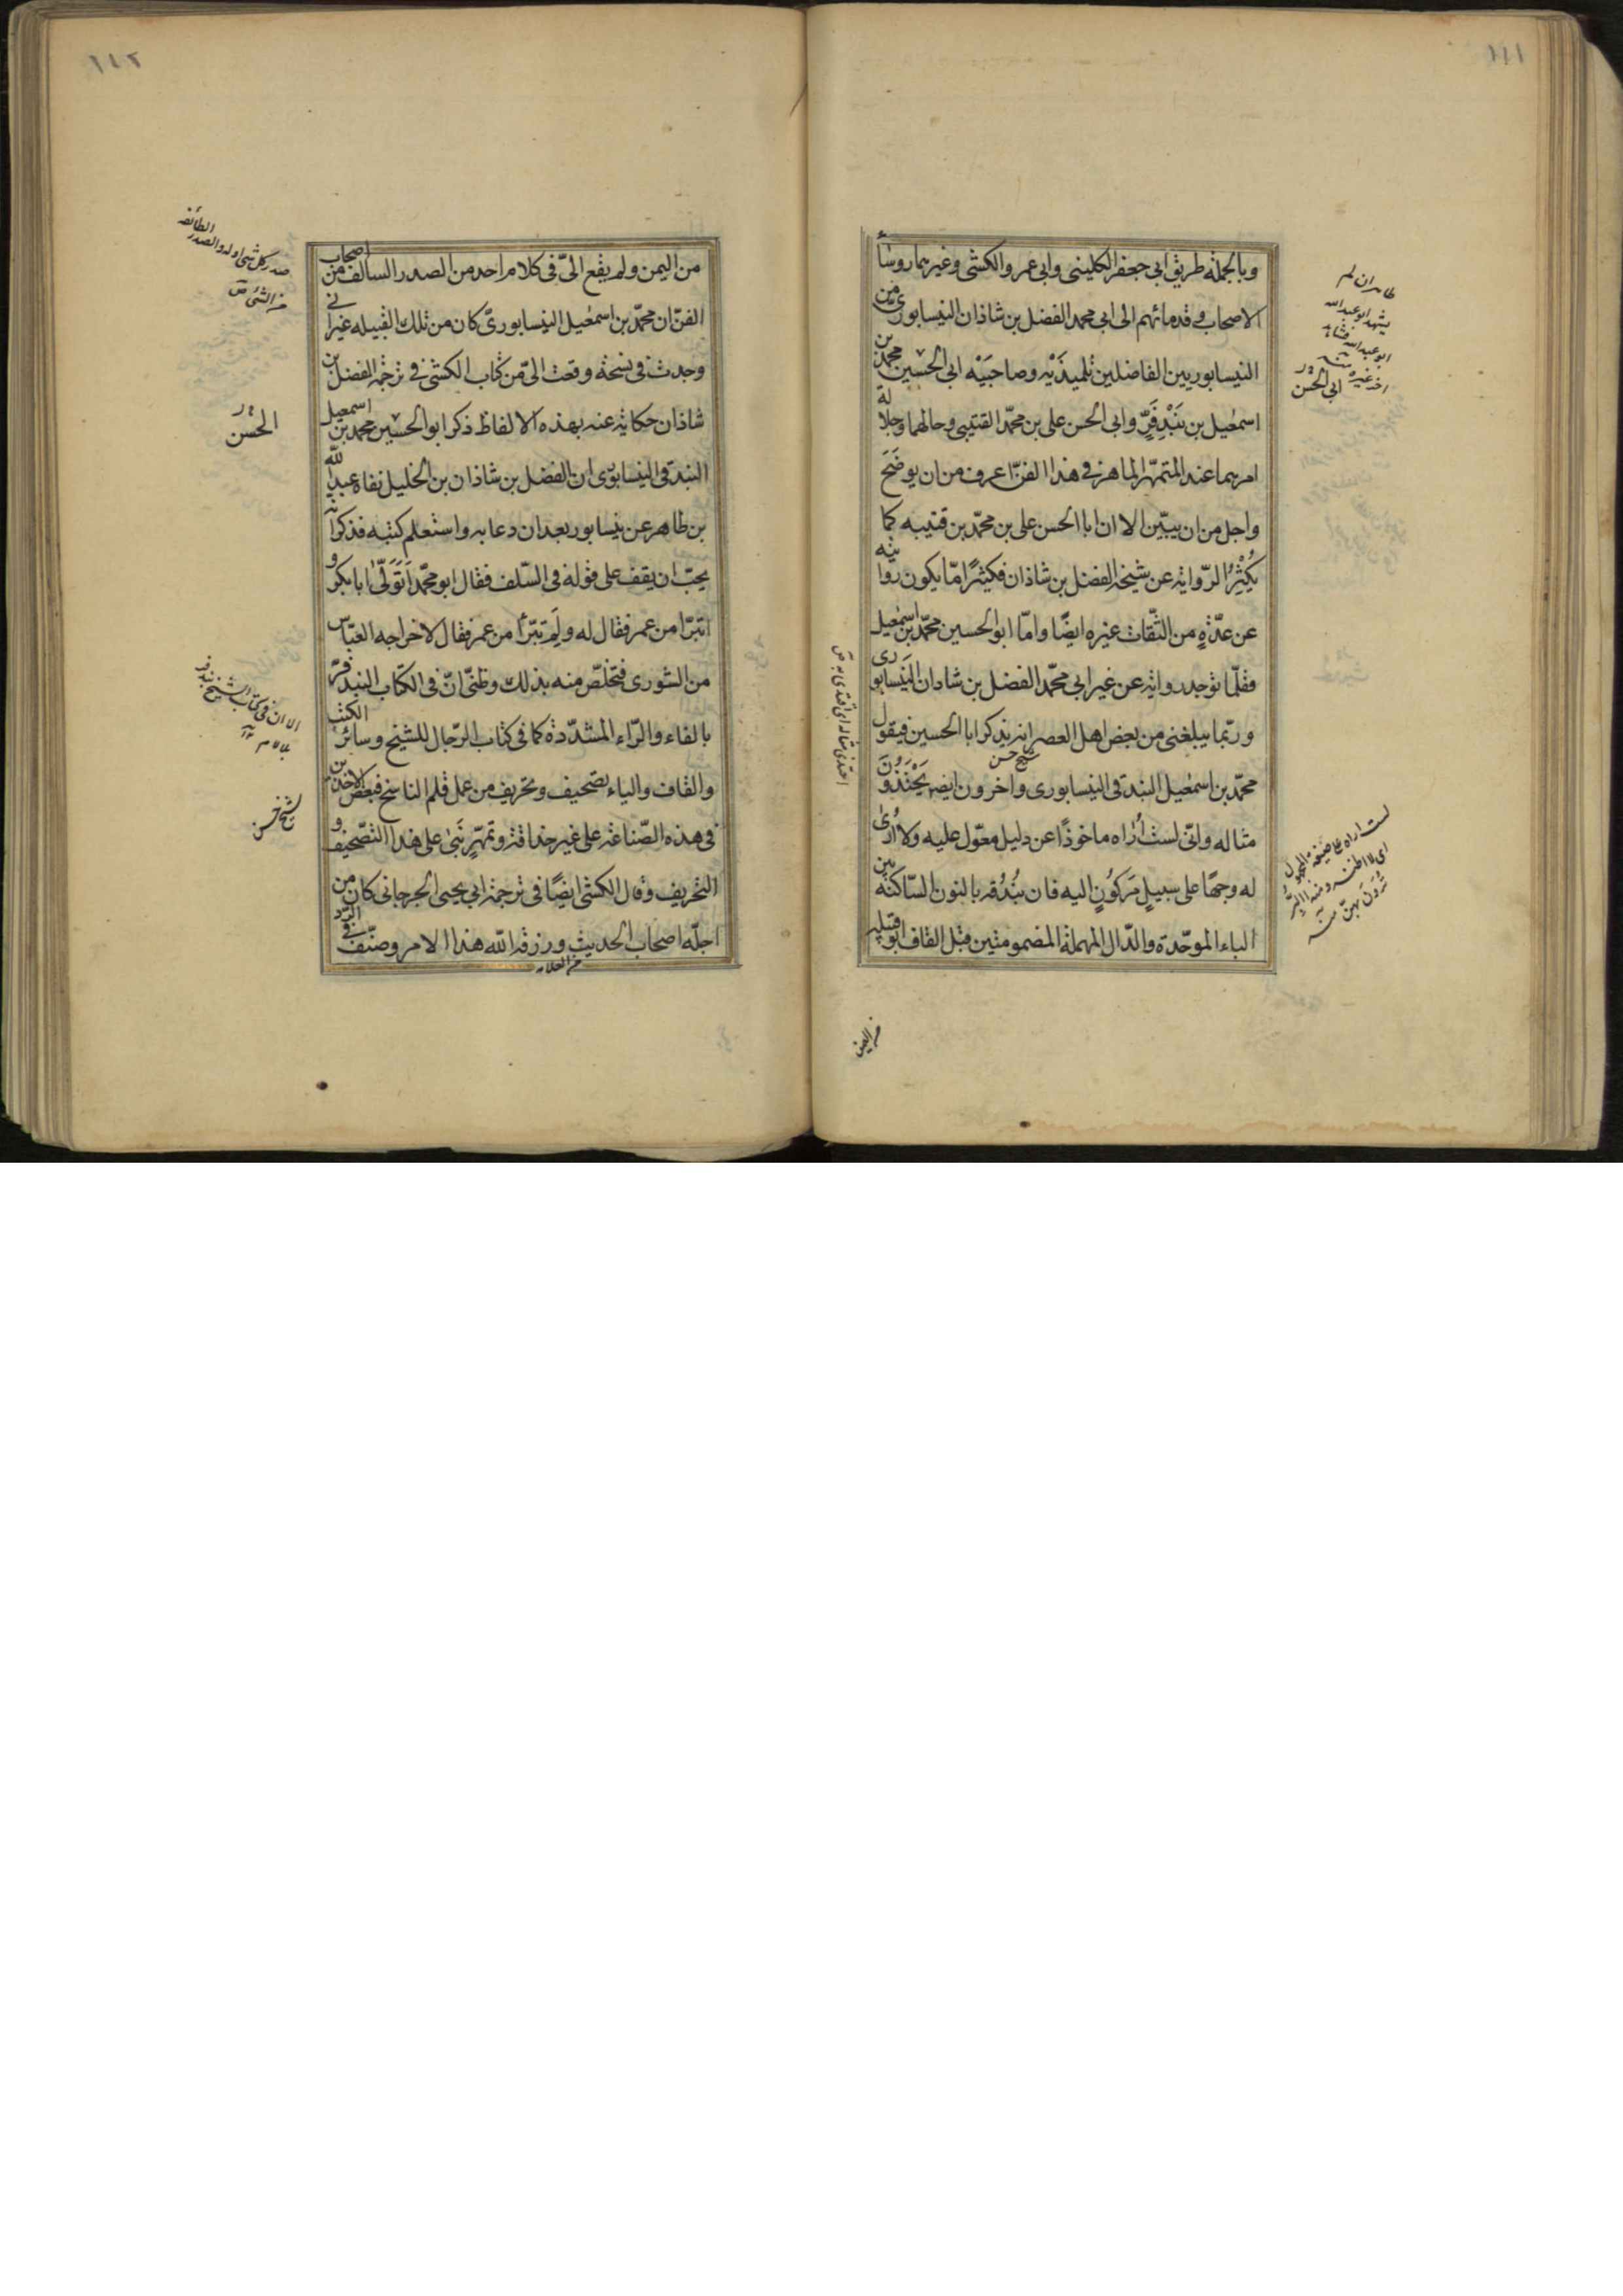 ١١١
وبالجملة طريق ابى جعفر الكلينى وابى عمرو الكشى وغيرهما روساء
الاصحاب وقدمائهم الى ابى محمد الفضل بن شاذان النيسابورى من
النيسابوريين الفاضلين تلميذَيْه وصاحبَيْه ابى الحسين محمد بن
اسمٰعيل بن بَنْدفَرّ وابى الحسن على بن محمّد القتيبى وحالهما وجلالة
امرهما عند المتمهّر الماهر فى هذا الفنّ اعرف من ان يوضَحَ
واجل من ان يبيّن الا ان ابا الحسن على بن محمّد بن قتيبه كما
يُكْثِرُ الرّواية عن شيخه الفضل بن شاذان فكثيرًا مّا يكون روايته
عن عدّةٍ من الثّقات غيره ايضًا وامّا ابو الحسين محمّد بن اسمٰعيل
فقلّما توجد رواية عن غير ابى محمّد الفضل بن شاذان النَيسابورى
وربّما يبلغنى من بعض اهل العصر انه يذكر ابا الحسين فيقول
شيخ حسن
محمّد بن اسمٰعيل البندقى النيسابورى واخرون ايضه يَحْتَذُوْنَ
مثاله وانّى لست اُراه ماخوذًا عن دليل معوّل عليه ولا اُرىٰ
له وجهًا على سبيلٍ مَركوُنٍ اليه فان بُنْدُقه بالنون السّاكنة بين
الباء الموحّدة والدّال المهملة المضمومتين قبل القاف ابو قبيلة
ابى الحسن
من اليمن
١١٢
من اليمن ولم يقع الىّ فى كلام احد من الصدر السالف من اصحاب
الفنّ ان محمّد بن اسمعيل النيسابورىّ كان من تلك القبيله غير انى
وجدت فى نسخة وقعت الىّ من كتاب الكشى فى ترجمة الفضل بن
شاذان حكاية عنه بهذه الالفاظ ذكر ابو الحسين محمد بن اسمعيل
البندقى النيسابورى ان الفضل بن شاذان بن الخليل نفاه عبد الله
بن طاهر عن نيسابور بعد ان دعا به واستعلم كتبه فذكر انه
يحبّ ان يقف على قوله فى السّلف فقال ابو محمّد اَتَوَلّىٰ ابا بكر و
اتبرّا من عمر فقال له ولِمَ تبرّأ من عمر فقال لاخراجه العبّاس
من الشورى فتخلّص منه بذلك وظنّى انّ فى الكتاب البندفرّ
بالفاء والرّاء المشدّدة كما فى كتاب الرّجال للشيخ وسائر الكتب
والقاف والياء تصحيف وتحريف من عمل قلم الناسخ فبعض الاخذين
فى هذه الصّناعة على غير حذاقة وتمهّرٍ بَنىٰ على هذا التّصحيف و
التحريف وقال الكشى ايضًا فى ترجمة ابى يحيى الجرجانى كان من
اجلّه اصحاب الحديث ورزقه الله هذا الامر وصنّف فى الردّ
الحسن
شيخ حسن